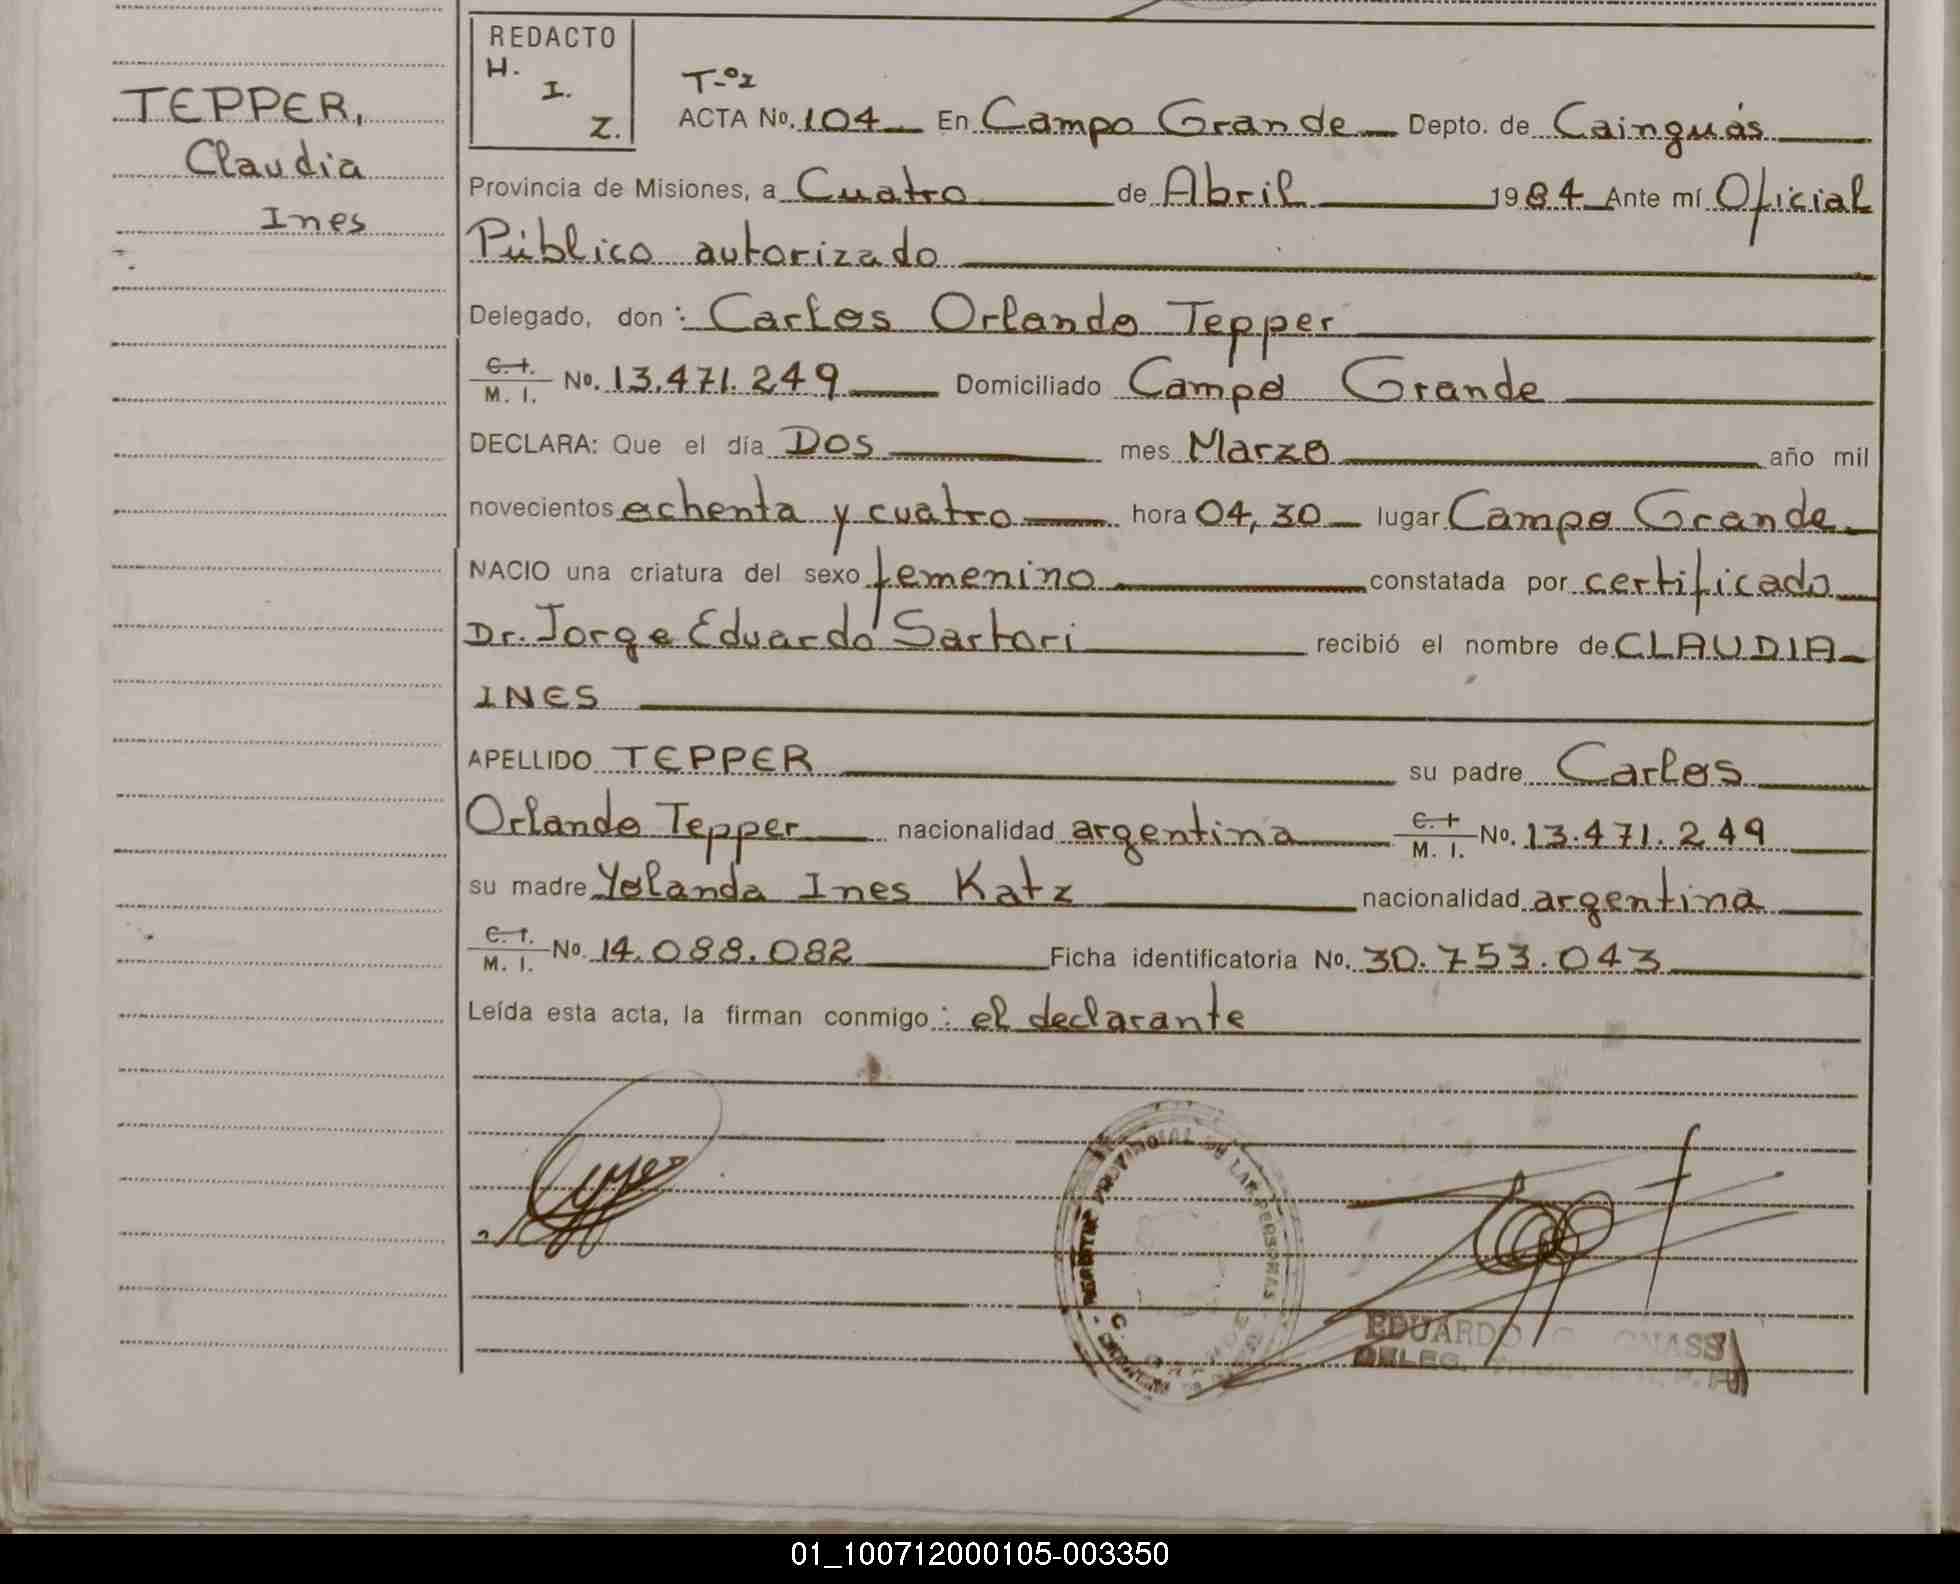 TEPPER,
Claudia
Ines
REDACTO
H.
I.
Z.
T-º2
ACTA Nº. 104 En Campo Grande Depto. de Cainguás
Provincia de Misiones, a Cuatro de Abril 1984 Ante mí Oficial
Público autorizado
Delegado, don: Carlos Orlando Tepper
C. I.
M. I. Nº. 13.471.249 Domiciliado Campo Grande
DECLARA: Que el día Dos mes Marzo año mil
novecientos ochenta y cuatro hora 04,30 lugar Campo Grande
NACIO una criatura del sexo femenino constatada por certificado
Dr. Jorge Eduardo Sartori recibió el nombre de CLAUDIA
INES
APELLIDO TEPPER su padre Carlos
Orlando Tepper nacionalidad argentina C. I. M. I. Nº. 13.471.249
su madre Yolanda Ines Katz nacionalidad argentina
C. I.
M. I. Nº. 14.088.082 Ficha identificatoria Nº. 30.753.043
Leída esta acta, la firman conmigo: el declarante
REGISTRO PROVINCIAL DE LAS PERSONAS
EDUARDO
DELEG.
01_100712000105-003350